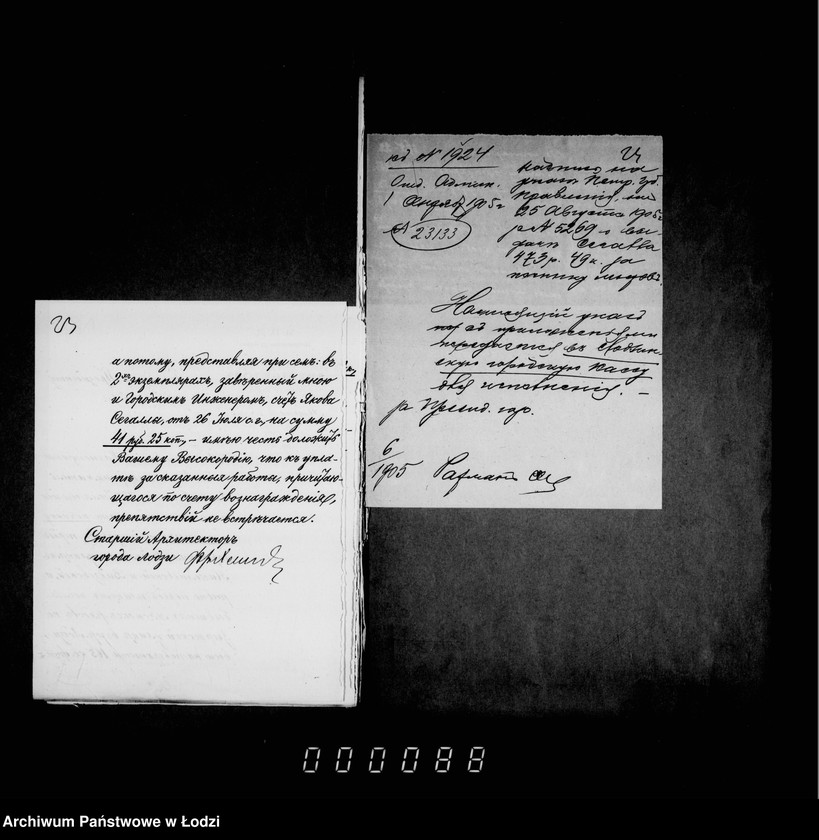 а потому, представляя при семъ: въ
2хъ экземплярахъ, завѣренный мною
и Городскимъ Инженеромъ, счетъ Якова
Сегаллы, отъ 26 Іюля с.г., на сумму
41 руб. 25 коп., – имѣю честь доложить
Вашему Высокородію, что къ упла-
тѣ за сказанныя работы, причитаю-
щагося по счету вознагражденія,
препятствій не встрѣчается.
Старшій Архитекторъ
города Лодзи
къ № 1924
Отд. Админ.
1 1905 г
№ 23133
на
указѣ Петр. Губ.
Правленія, отъ
25 Августа 1905 г.
за № 5269 о вы-
дачѣ Сегалла
473 р. 49 к. за
починку
Настоящій указъ
съ приложеніями
передается въ Лодзин-
скую городскую Кассу
для исполненія. –
за Презид. гор.
6
/1905
000088
Archiwum Państwowe w Łodzi